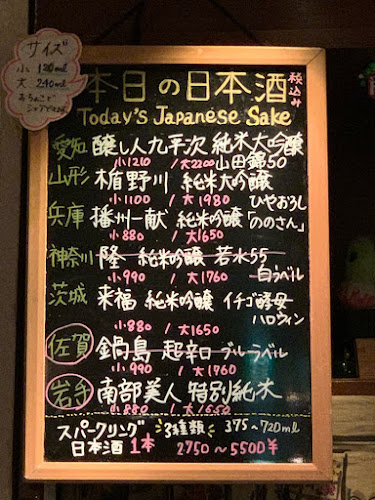 サイズ
小 120ml
大 240ml
おちょこで
シェアできます
本日の日本酒 税込み
Today's Japanese Sake
愛知 醸し人九平次 純米大吟醸
小1210 / 大2200 山田錦50
山形 楯野川 純米大吟醸
小1100 / 大1980 ひやおろし
兵庫 播州一献 純米吟醸「ののさん」
小880 / 大1650
神奈川 隆 純米吟醸 若水55
小990 / 大1760 白ラベル
茨城 来福 純米吟醸 イチゴ酵母
ハロウィン
小880 / 大1650
佐賀 鍋島 超辛口 ブルーラベル
小990 / 大1760
岩手 南部美人 特別純米
小880 / 大1650
スパークリング 3種類 375~720ml
日本酒 1本 2750~5500¥